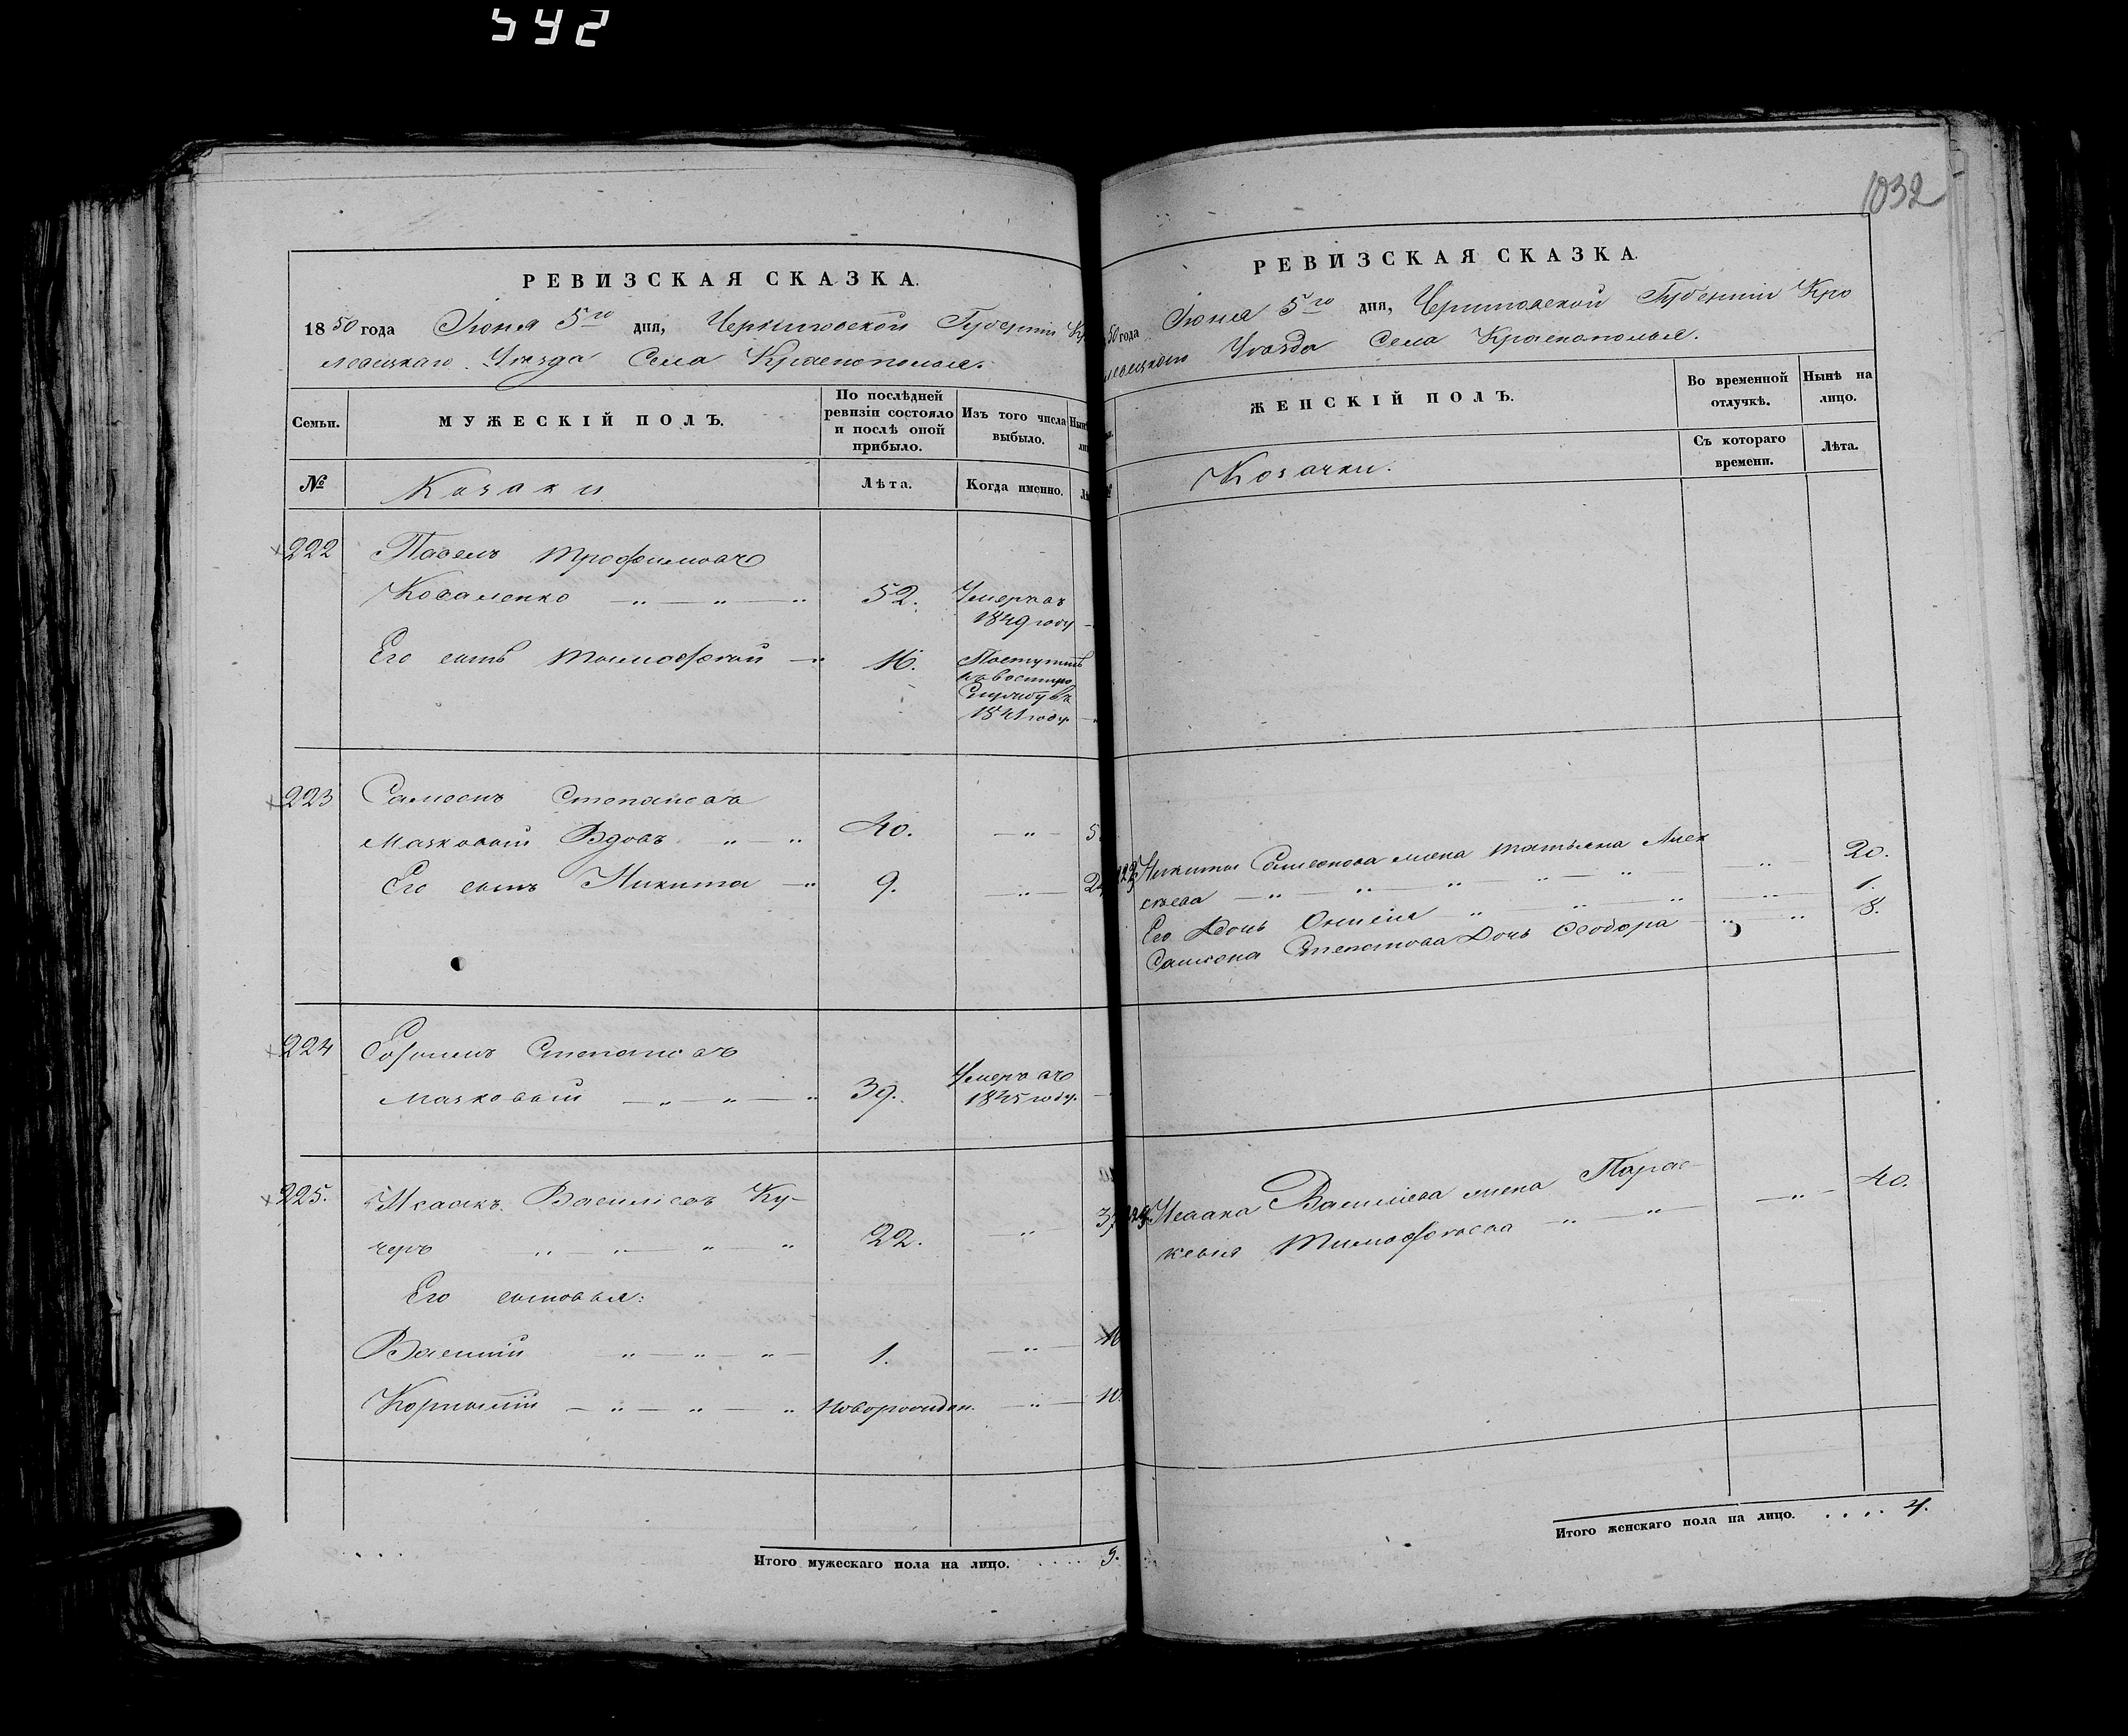 592
РЕВИЗСКАЯ СКАЗКА.
1850 года Июня 5го дня, Черниговской Губерніи Кро
левецкаго Уезда Села Краснополья.
Семьи. МУЖЕСКІЙ ПОЛЪ. По послѣдней ревизіи состояло и послѣ оной прибыло. Изъ того числа выбыло.
№ Козаки Лѣта. Когда именно.
222 Павелъ Трофимовъ
Коваленко — „ — „ — „ 52. Умеръ въ
1849 году
Его сынъ Тимофѣй — „ 16. Поступилъ
въ
Службу въ
1841 году
223 Самсонъ Степановъ
Мачковый Вдовъ „ — „ 40. — „ — 5
Его сынъ Никита — „ 9. — „ — 2
224 Степановъ
Мачковый — „ — „ — „ 39. Умеръ въ
1845 году.
225. Исаакъ Васильевъ Ку-
черъ „ — „ — „ „ 22. — „ 37
Его сыновья:
Василій „ — „ — „ — 1. — „ — 16
Корнилій — „ — „ — „ новорожден. — „ — 10.
Итого мужескаго пола на лицо. . . . . 5.
1032
РЕВИЗСКАЯ СКАЗКА.
50 года Июня 5го дня, Черниговской Губерніи Кро
левецкаго Уезда Села Краснополья.
ЖЕНСКІЙ ПОЛЪ. Во временной отлучкѣ. Нынѣ на лицо.
Козачки. Съ котораго времени. Лѣта.
223 Никиты Самсонова жена Татьяна Алек
сѣева — „ — „ — „ — „ — „ — „ 20.
Его Дочь — „ — „ — „ — „ — 1.
Самсона Степанова Дочь Ѳеодора — „ — „ 8.
225 Исаака Васильева жена Парас-
кевия Тимофѣева — „ — „ — — „ — 40.
Итого женскаго пола на лицо. . . . . 4.